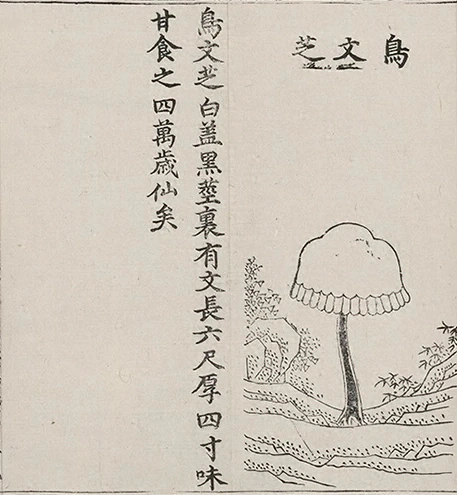 鳥文芝
鳥文芝白蓋黑莖裏有文長六尺厚四寸味
甘食之四萬歲仙矣